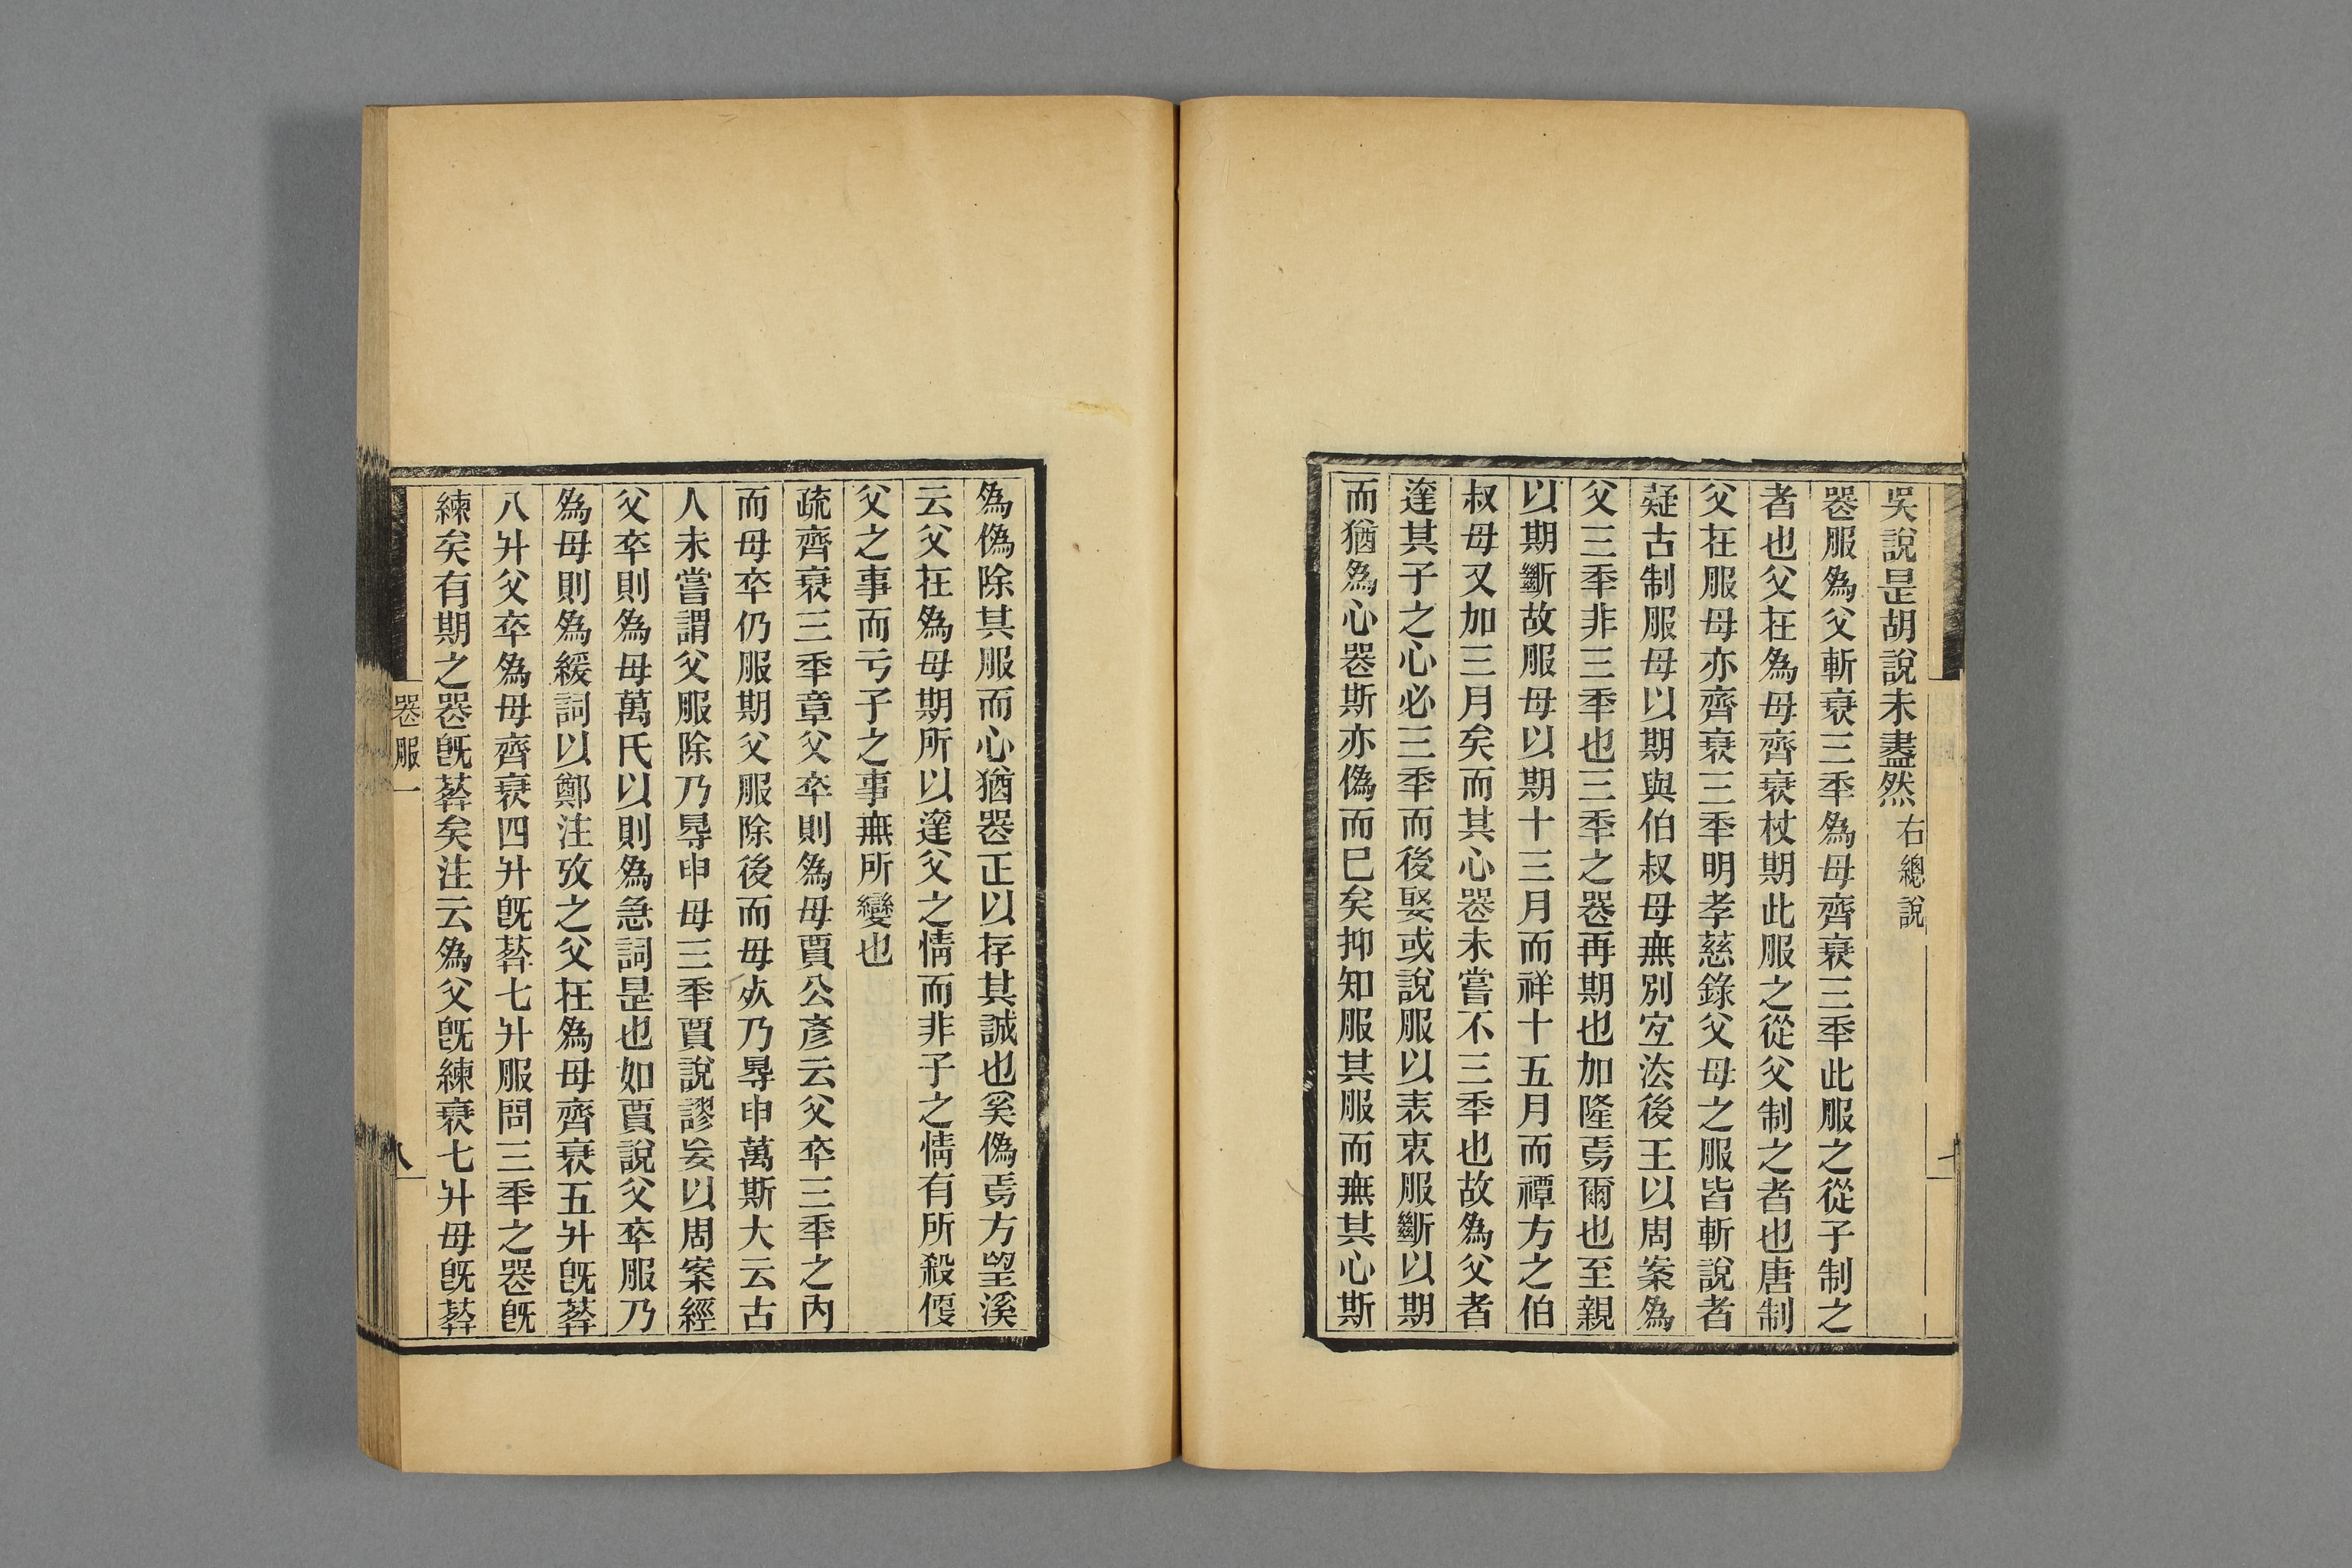 吳說是胡說未盡然 右總說
喪服為父斬衰三秊為母齊衰三秊此服之從子制之
者也父在為母齊衰杖期此服之從父制之者也唐制
父在服母亦齊衰三秊明孝慈錄父母之服皆斬說者
疑古制服母以期與伯叔母無別宐法後王以周案為
父三秊非三秊也三秊之喪再期也加隆焉爾也至親
以期斷故服母以期十三月而祥十五月而禫方之伯
叔母又加三月矣而其心喪未嘗不三秊也故為父者
達其子之心必三秊而後娶或說服以表衷服斷以期
而猶為心喪斯亦偽而已矣抑知服其服而無其心斯
為偽除其服而心猶喪正以存其誠也奚偽焉方望溪
云父在為母期所以達父之情而非子之情有所殺復
父之事而亏子之事無所變也
疏齊衰三秊章父卒則為母賈公彥云父卒三秊之內
而母卒仍服期父服除後而母歿乃得申萬斯大云古
人未嘗謂父服除乃得申母三秊賈說謬妄以周案經
父卒則為母萬氏以則為急詞是也如賈說父卒服乃
為母則為緩詞以鄭注攷之父在為母齊衰五升旣葬
八升父卒為母齊衰四升旣葬七升服問三秊之喪旣
練矣有期之喪旣葬矣注云為父旣練衰七升母旣葬
喪服一
八